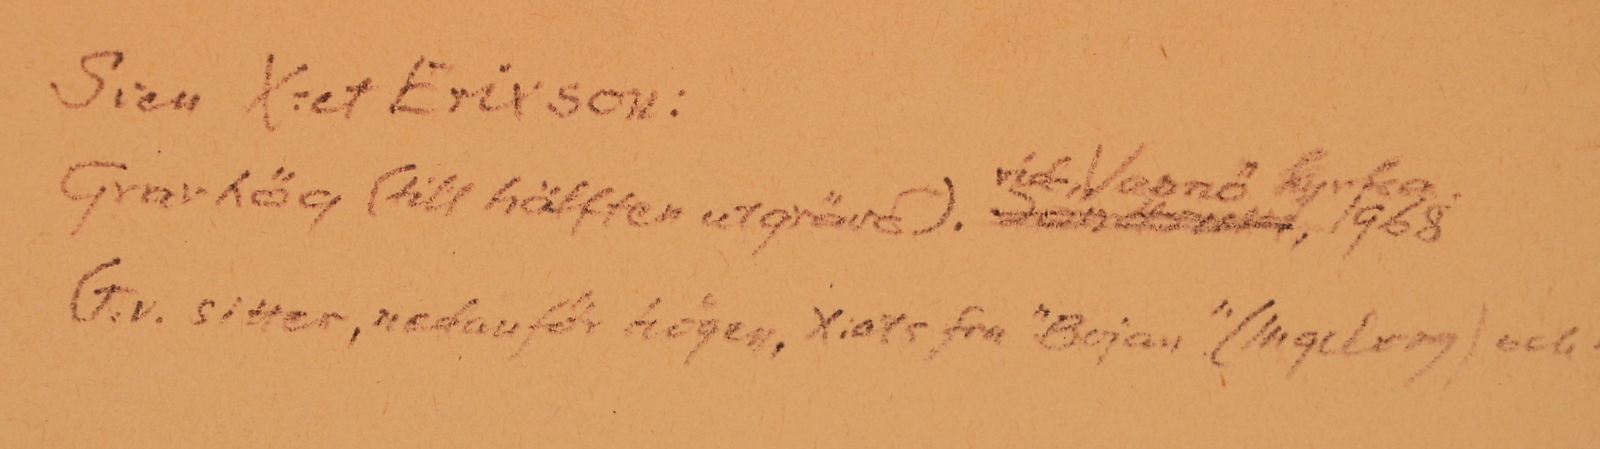 Sven X:et Erixson:
Gravhög (till hälften utgrävd). vid Vapnö kyrka, 1968
(T.v. sitter, nedanför högen, X:ets fru "Bojan" (Ingeborg) och